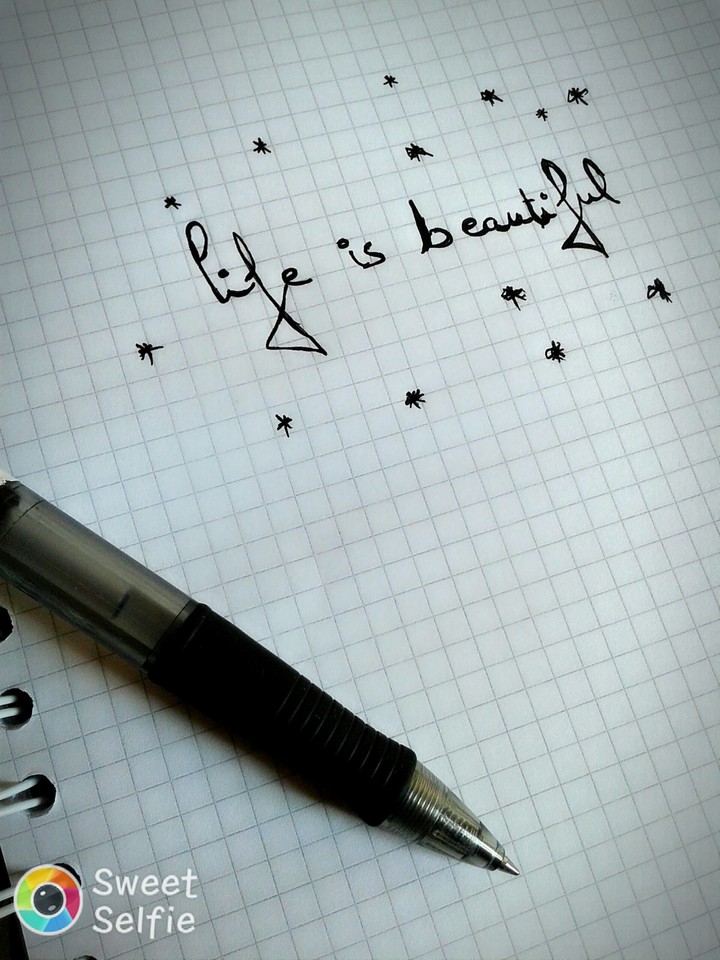 life is beautiful
Sweet
Selfie